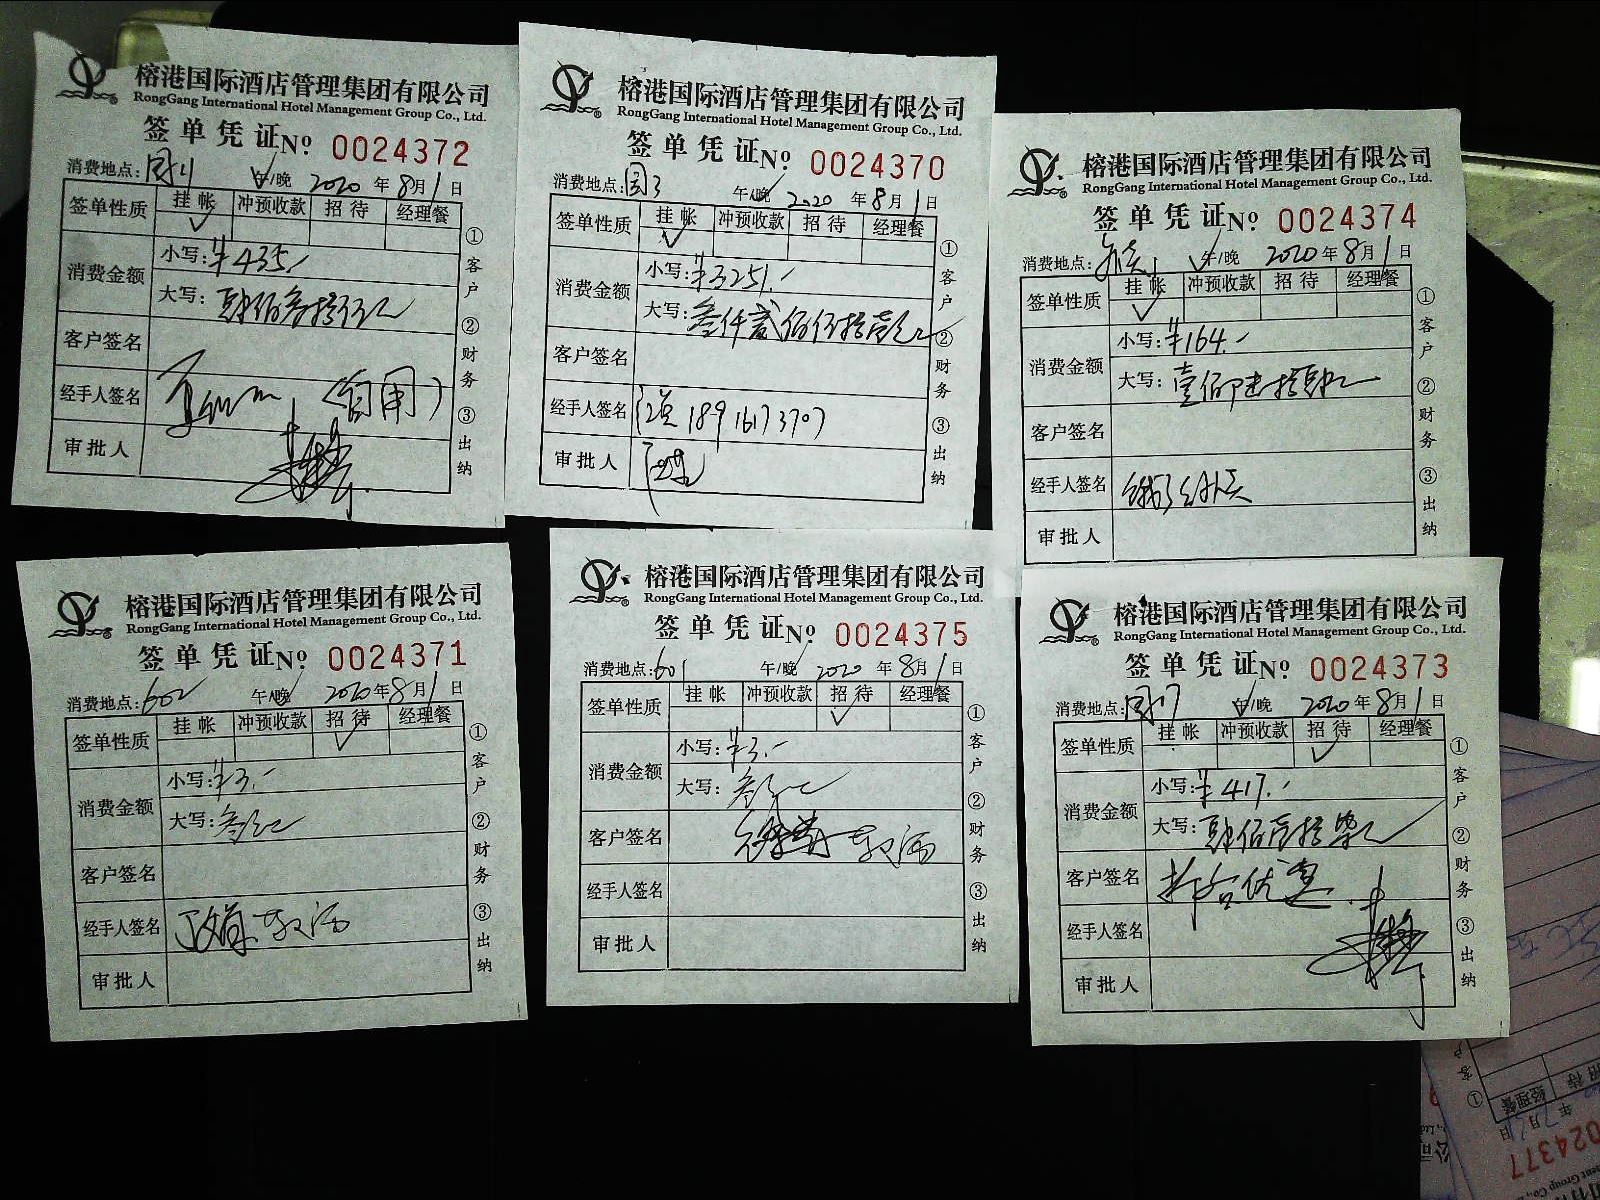 榕港国际酒店管理集团有限公司
RongGang International Hotel Management Group Co., Ltd.
签单凭证 Nº 0024372
消费地点: 午/晚 2020 年 8月 1 日
签单性质 挂帐 冲预收款 招待 经理餐
消费金额 小写: ¥435.-
大写: 肆佰叁拾伍元
客户签名
经手人签名 (自用)
审批人
①客户 ②财务 ③出纳
榕港国际酒店管理集团有限公司
RongGang International Hotel Management Group Co., Ltd.
签单凭证 Nº 0024370
消费地点: 午/晚 2020 年 8月 1 日
签单性质 挂帐 冲预收款 招待 经理餐
消费金额 小写: ¥3251.-
大写: 叁仟贰佰伍拾壹元
客户签名
经手人签名 18916173707
审批人
①客户 ②财务 ③出纳
榕港国际酒店管理集团有限公司
RongGang International Hotel Management Group Co., Ltd.
签单凭证 Nº 0024374
消费地点: 午/晚 2020 年 8月 1 日
签单性质 挂帐 冲预收款 招待 经理餐
消费金额 小写: ¥164.-
大写: 壹佰陆拾肆元
客户签名
经手人签名
审批人
①客户 ②财务 ③出纳
榕港国际酒店管理集团有限公司
RongGang International Hotel Management Group Co., Ltd.
签单凭证 Nº 0024371
消费地点: 602 午/晚 2020 年 8月 1 日
签单性质 挂帐 冲预收款 招待 经理餐
消费金额 小写: ¥3.-
大写: 叁元
客户签名
经手人签名 敬酒
审批人
①客户 ②财务 ③出纳
榕港国际酒店管理集团有限公司
RongGang International Hotel Management Group Co., Ltd.
签单凭证 Nº 0024375
消费地点: 601 午/晚 2020 年 8月 1 日
签单性质 挂帐 冲预收款 招待 经理餐
消费金额 小写: ¥3.-
大写: 叁元
客户签名 敬酒
经手人签名
审批人
①客户 ②财务 ③出纳
榕港国际酒店管理集团有限公司
RongGang International Hotel Management Group Co., Ltd.
签单凭证 Nº 0024373
消费地点: 午/晚 2020 年 8月 1 日
签单性质 挂帐 冲预收款 招待 经理餐
消费金额 小写: ¥417.-
大写: 肆佰壹拾柒元
客户签名 抬台优惠
经手人签名
审批人
①客户 ②财务 ③出纳
0024377